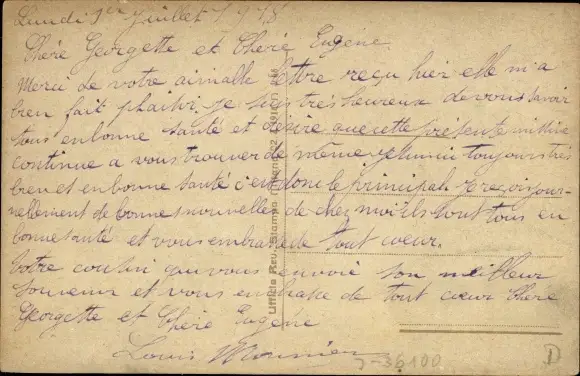 Lundi 1er Juillet 1918
Chère Georgette et Chère Eugène
Merci de votre aimable lettre reçu hier elle m'a
bien fait plaisir je suis très heureux de vous savoir
tous en bonne santé et désire que cette présente missive
continue a vous trouver de même. toujours très
bien et en bonne santé c'est donc le principal. Je reçois jour-
nellement de bonnes nouvelles de chez moi ils sont tous en
bonne santé et vous embrasse de tout coeur.
Votre cousin qui vous envoie son meilleur
souvenir et vous embrasse de tout coeur Chère
Georgette et Chère Eugène
Louis
J-36100
D
Ufficio Rev. Stampa